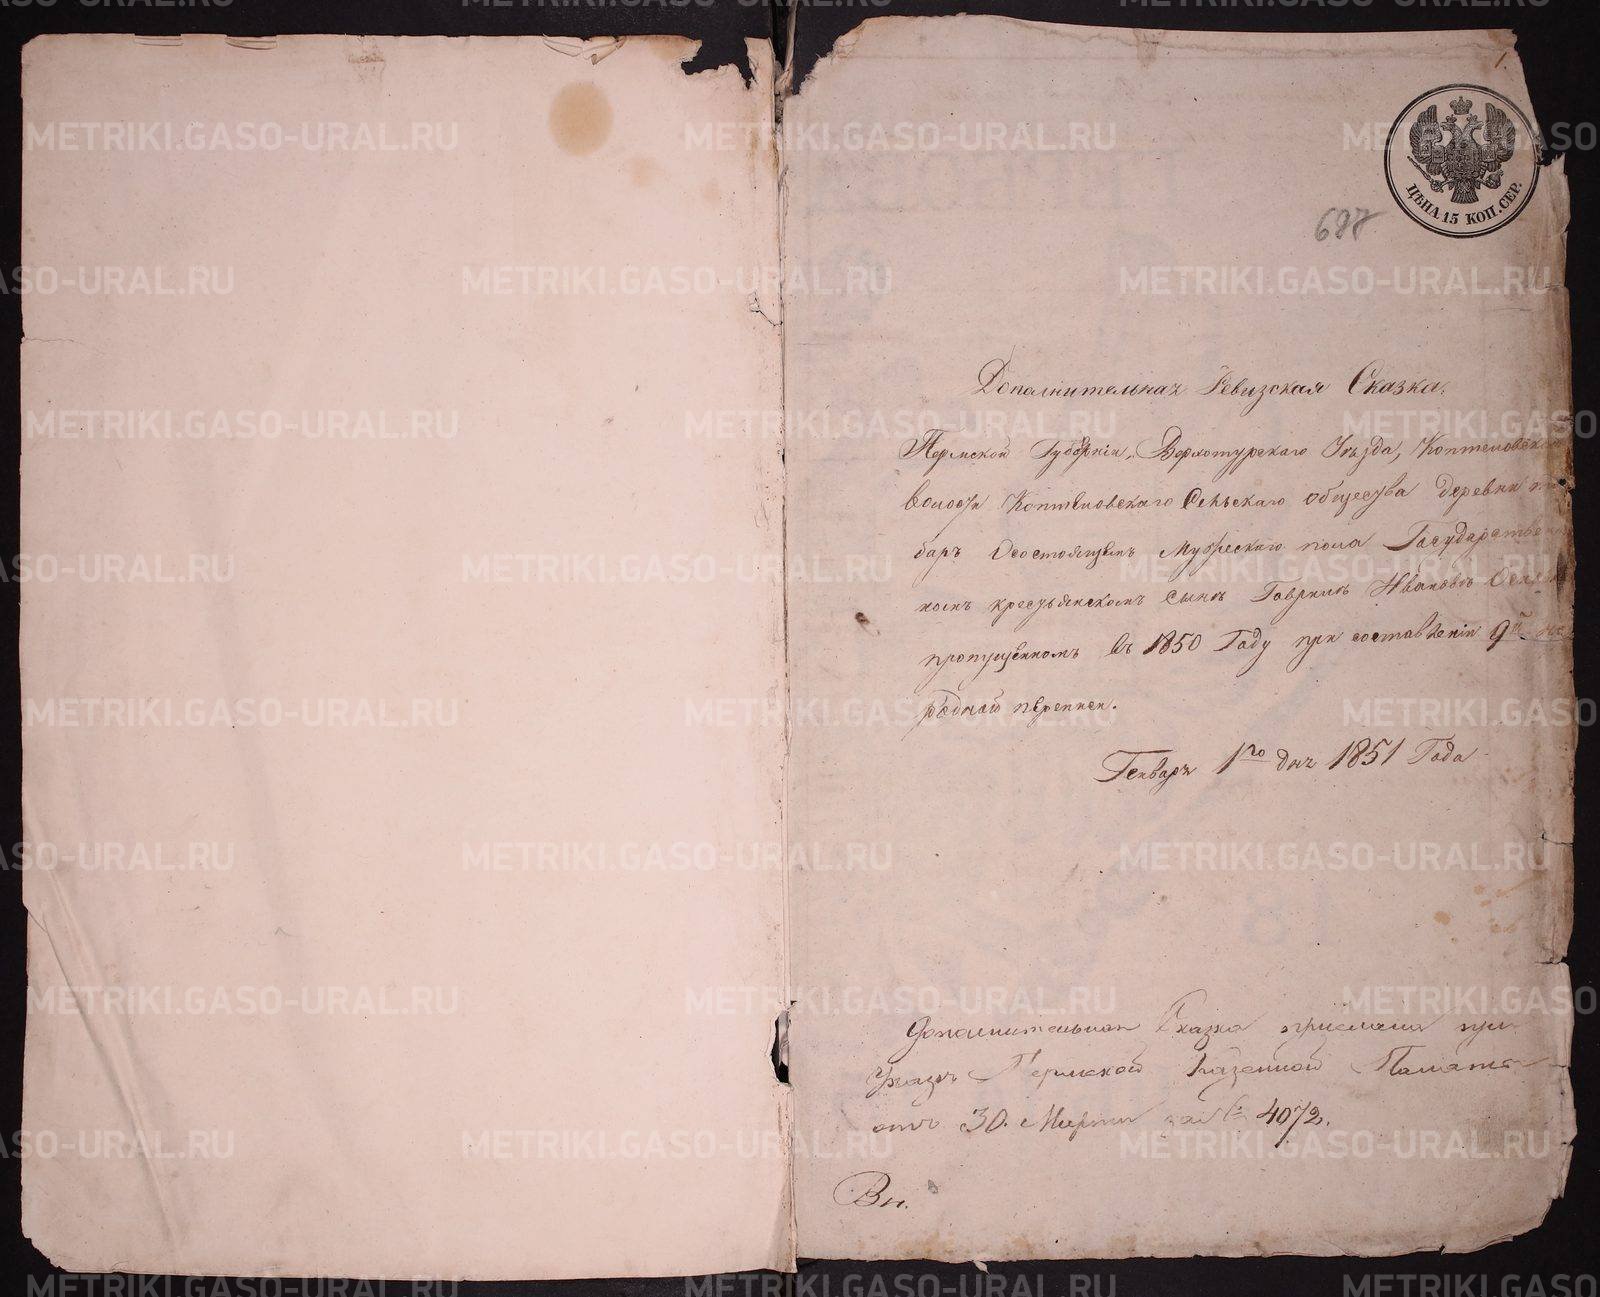 1.
ЦѢНА 15 КОП. СЕР.
687
Дополнительная Ревизская Сказка.
Пермской Губерніи, Верхотурскаго Уѣзда, Коптеловской
Волости Коптеловскаго Сельскаго общества деревни
баръ О состоящемъ Мужескаго пола Государствен
номъ крестьянскомъ сынѣ Гаврилѣ Ивановѣ
пропущенномъ въ 1850 Году при составленіи 9й на
родной переписи.
Генваря 1го дня 1851 Года
Дополнительная Сказка прислана при
Указѣ Пермской Казенной Палаты
отъ 30. Марта за № 4072.
Вн.
METRIKI.GASO-URAL.RU